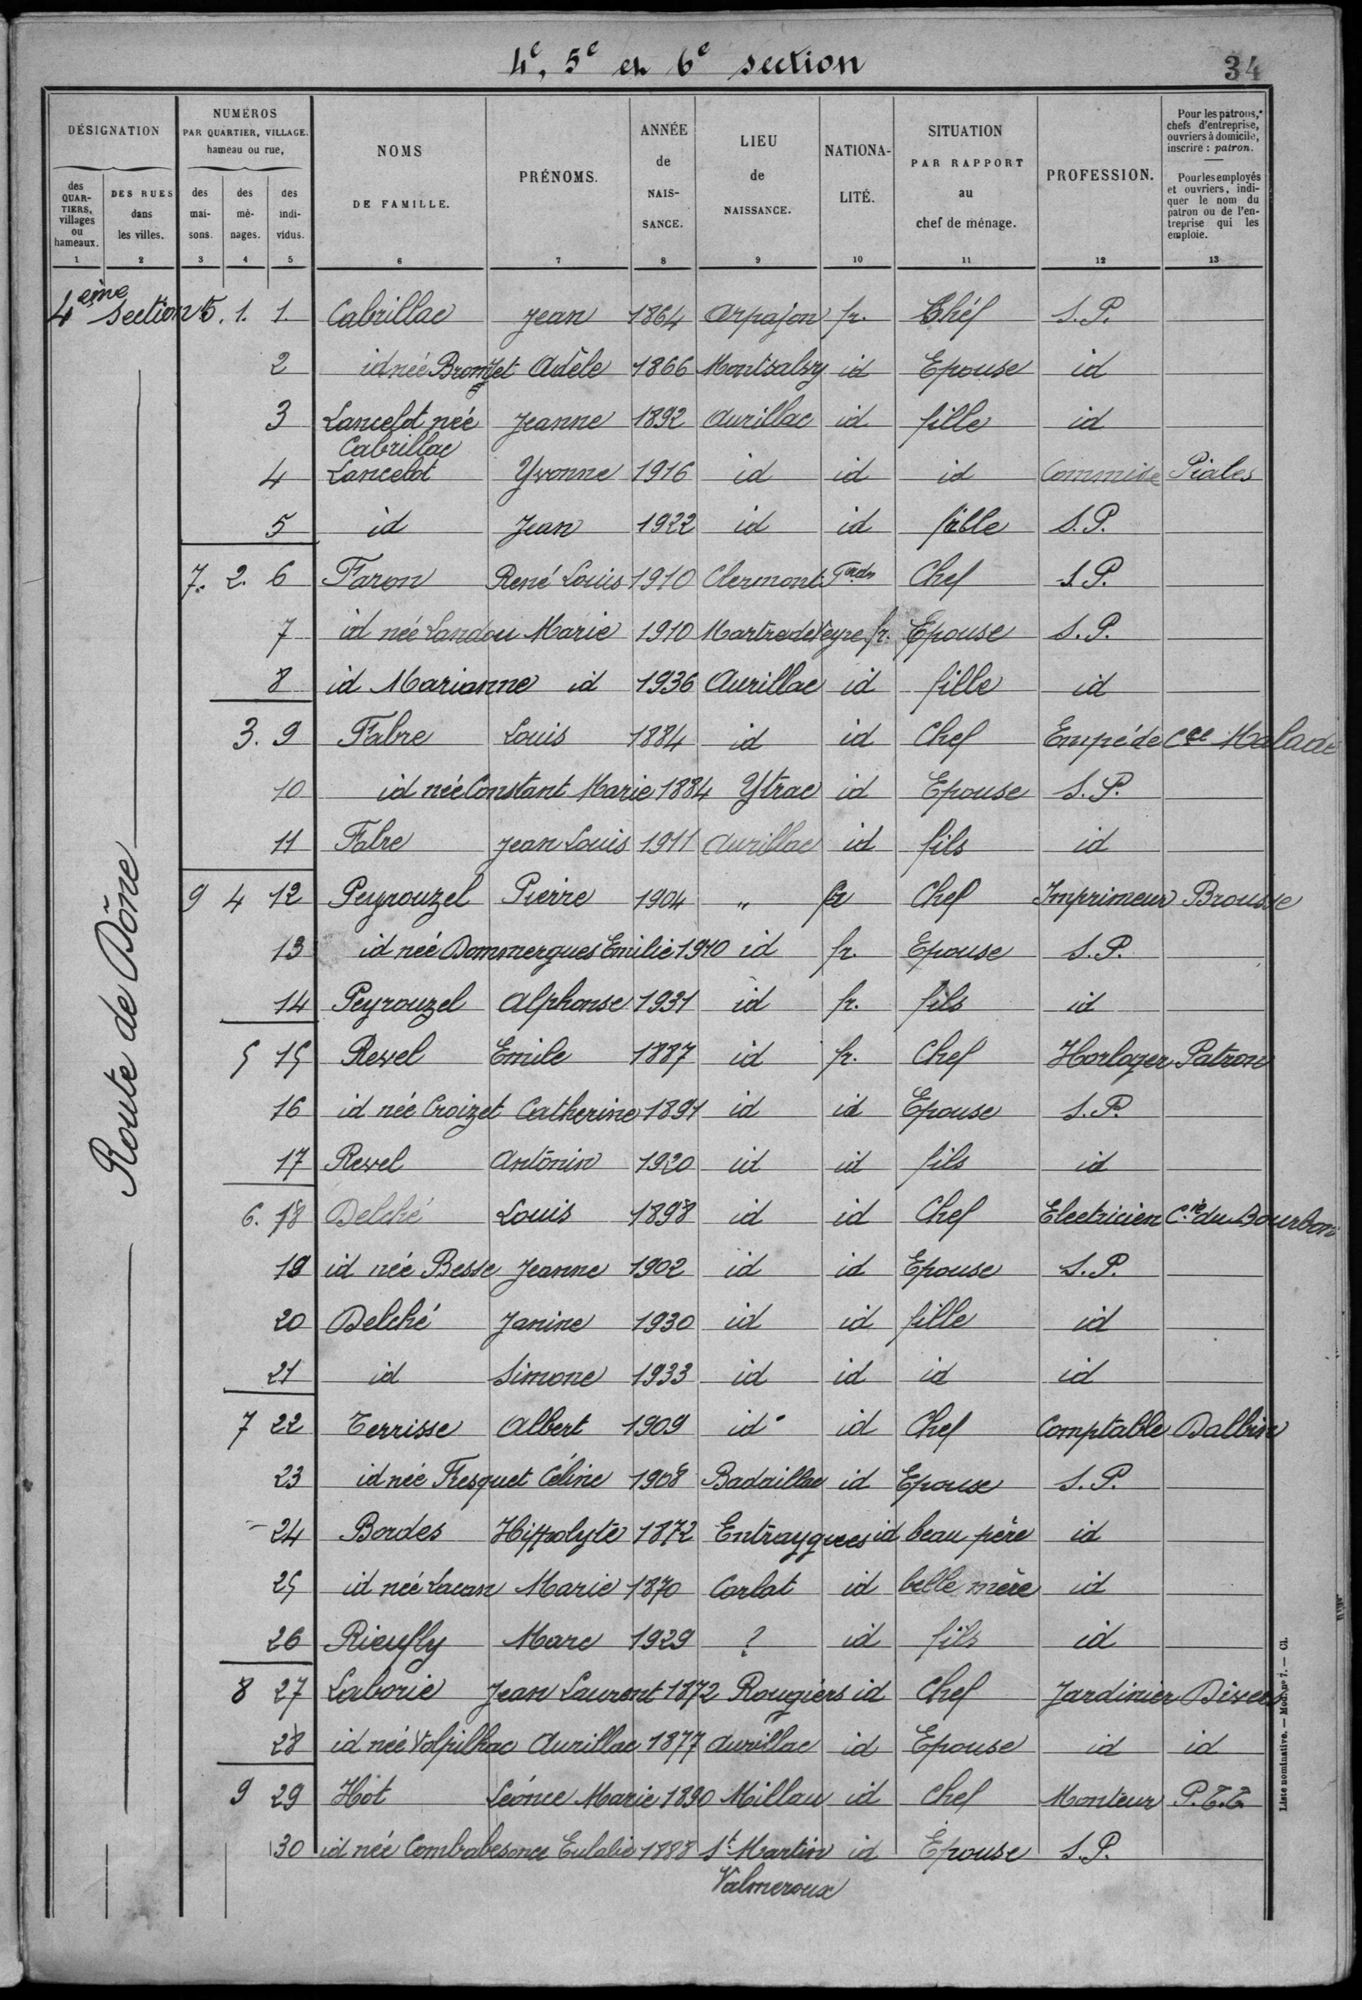 4e, 5e et 6e section
34
DÉSIGNATION
NUMÉROS PAR QUARTIER, VILLAGE, hameau ou rue,
NOMS DE FAMILLE.
PRÉNOMS.
ANNÉE de NAIS- SANCE.
LIEU de NAISSANCE.
NATIONA- LITÉ.
SITUATION PAR RAPPORT au chef de ménage.
PROFESSION.
Pour les patrons, chefs d'entreprise, ouvriers à domicile, inscrire : patron.
Pour les employés et ouvriers, indi- quer le nom du patron ou de l'en- treprise qui les emploie.
des QUAR- TIERS, villages ou hameaux.
DES RUES dans les villes.
des mai- sons.
des mé- nages.
des indi- vidus.
1 2 3 4 5 6 7 8 9 10 11 12 13
4ème section 5. 1. 1. Cabrillac Jean 1864 Arpajon fr. Chef S.P.
2 id née Bromzet Adèle 1866 Montsalvy id Epouse id
3 Lancelot née Cabrillac Jeanne 1892 Aurillac id fille id
4 Lancelot Yvonne 1916 id id id Commise Piales
5 id Jean 1922 id id S.P.
7. 2. 6 Faron René Louis 1910 Clermont Chef S.P.
7 id née Landou Marie 1910 Martredeveyre fr. Epouse S.P.
8 id Marianne id 1936 Aurillac id fille id
3. 9 Fabre Louis 1884 id id Chef Emp é de Cse Malade
10 id née Constant Marie 1884 Ytrac id Epouse S.P.
11 Fabre Jean Louis 1911 Aurillac id fils id
9 4 12 Peyrouzel Pierre 1904 " fr Chef Imprimeur Brousse
13 id née Dommergues Emilie 1910 id fr. Epouse S.P.
14 Peyrouzel Alphonse 1931 id fr. fils id
5 15 Revel Emile 1887 id fr. Chef Horloger Patron
16 id née Croizet Catherine 1891 id id Epouse S.P.
17 Revel Antonin 1920 id id fils id
6. 18 Delché Louis 1898 id id Chef Electricien Cie du Bourbon
19 id née Besse Jeanne 1902 id id Epouse S.P.
20 Delché Janine 1930 id id fille id
21 id Simone 1933 id id id id
7 22 Terrisse Albert 1909 id id Chef Comptable Dalbin
23 id née Fresquet Céline 1908 Badaillac id Epouse S.P.
24 Bordes Hippolyte 1872 Entraygues id beau père id
25 id née Lacan Marie 1870 Carlat id belle mère id
26 Rieufly Marc 1929 ? id fils id
8 27 Laborie Jean Laurent 1872 Rougiers id Chef Jardinier Divers
28 id née Volpilhac Aurillac 1877 Aurillac id Epouse id id
9 29 Hot Léonce Marie 1890 Millau id Chef Monteur P.T.T
30 id née Combabesonce Eulalie 1888 St Martin Valmeroux id Epouse S.P.
Route de Dône
Liste nominative. — Mod. no 7. — Cl.